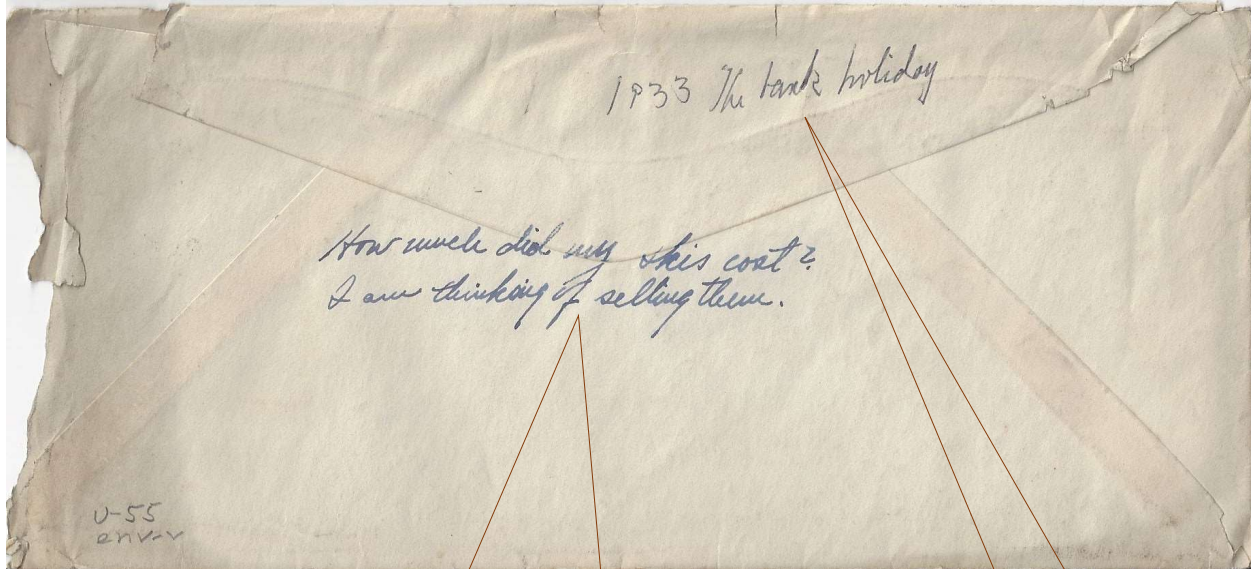 1933 The bank holiday
How much did my skis cost?
I am thinking of selling them.
U-55
env-v